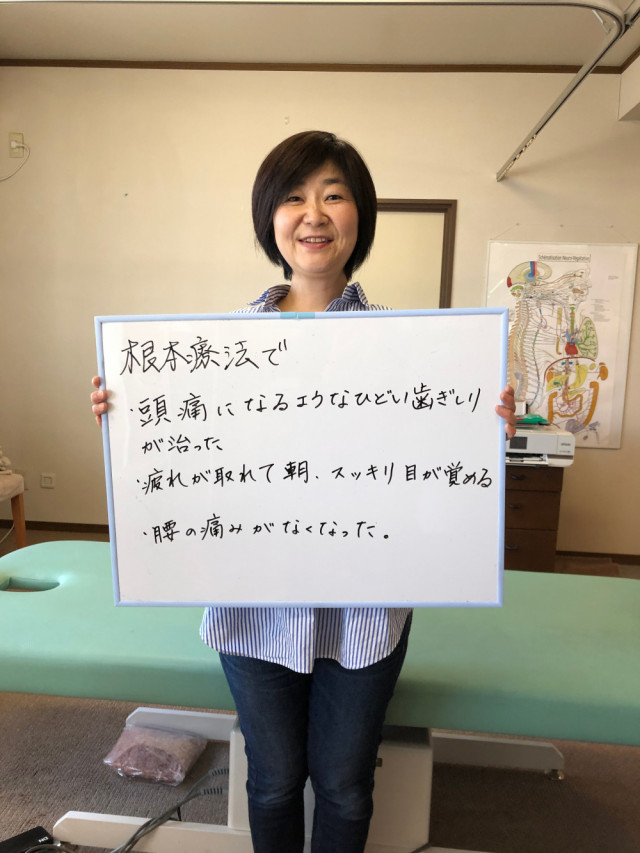 根本療法で
・頭痛になるようなひどい歯ぎしり
が治った
・疲れが取れて朝、スッキリ目が覚める
・腰の痛みがなくなった。